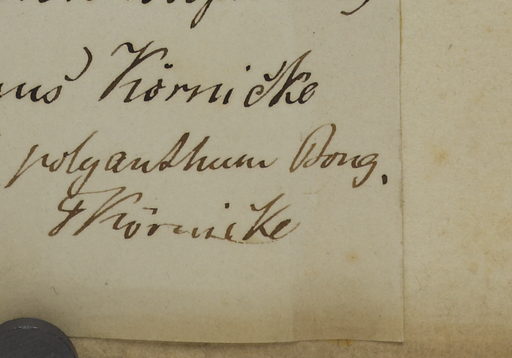 nus) Körnicke
polyanthum Bong.
F Körnicke